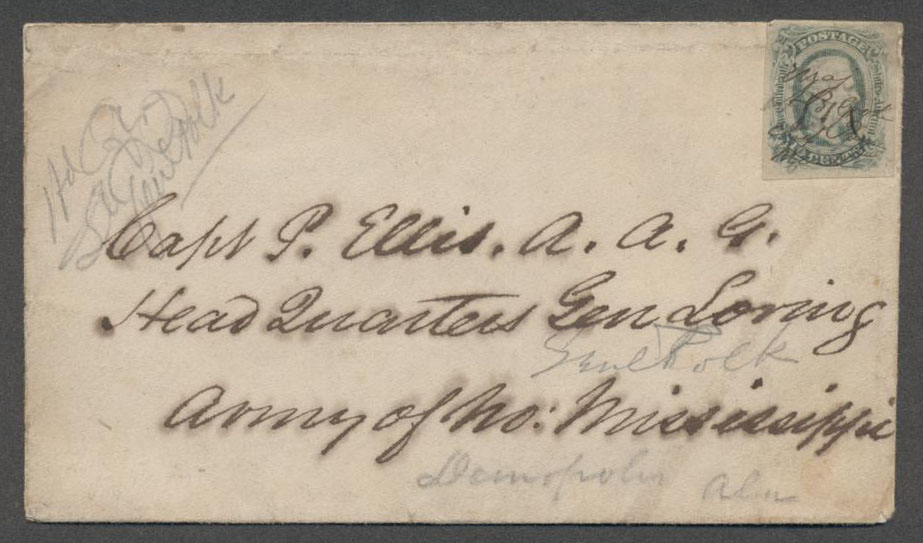 POSTAGE
Hd Qr.
Genl Polk
Capt P. Ellis. A. A. G.
Head Quarters Gen Loring
Genl Polk
Army of No: Mississippi
Demopolis Ala